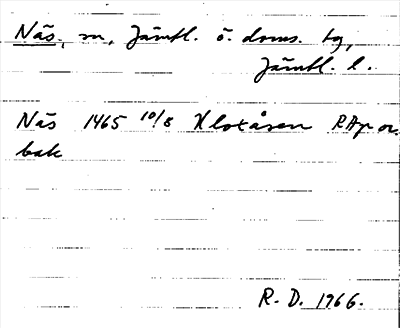 Näs, m, Jämtl. ö. doms. tg,
Jämtl. l.
Näs 1465 10/8 Klotåsen RAp or.
bak
R. D. 1966.